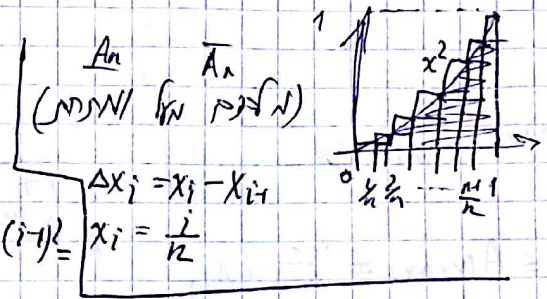 A̲n A̅n
(מלבנים מעל ומתחת)
Δxᵢ = xᵢ - xᵢ₋₁
(i-1)² = xᵢ = i/n
1
x²
0 1/n 2/n ... n-1/n 1